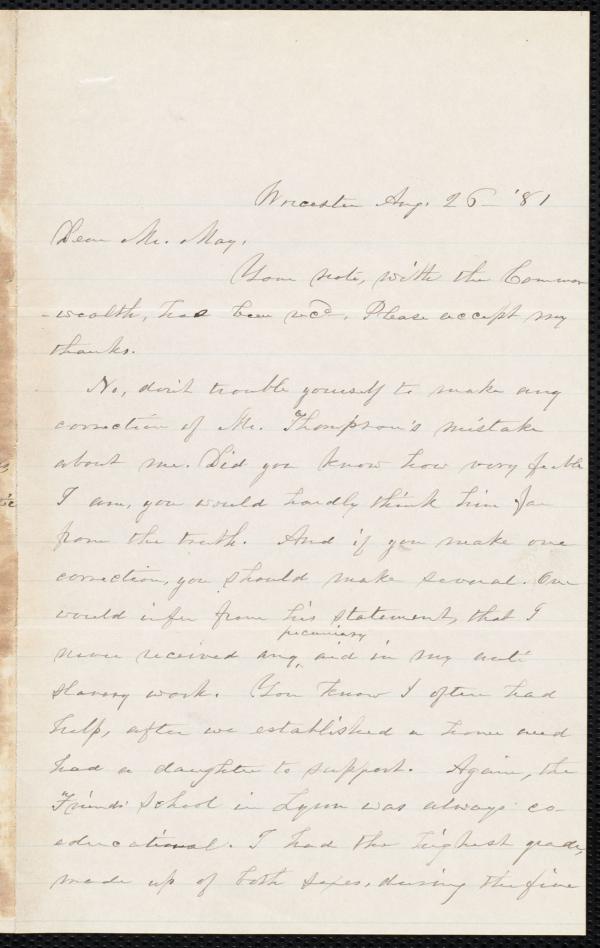 Worcester Aug. 26 - '81
Dear Mr. May,
Your note, with the Common
- wealth, has been rec'd. Please accept my
thanks.
No, don't trouble yourself to make any
correction of Mr. Thompson's mistake
about me. Did you know how very feeble
I am, you would hardly think him far
from the truth. And if you make one
correction, you should make several. One
would infer from his statement, that I
pecuniary
never received any ‸ aid in my anti
slavery work. You know I often had
help, after we established a home and
had a daughter to support. Again, the
"Friends' School in Lynn was always co-
educational. I had the highest grade,
made up of both sexes, during the five